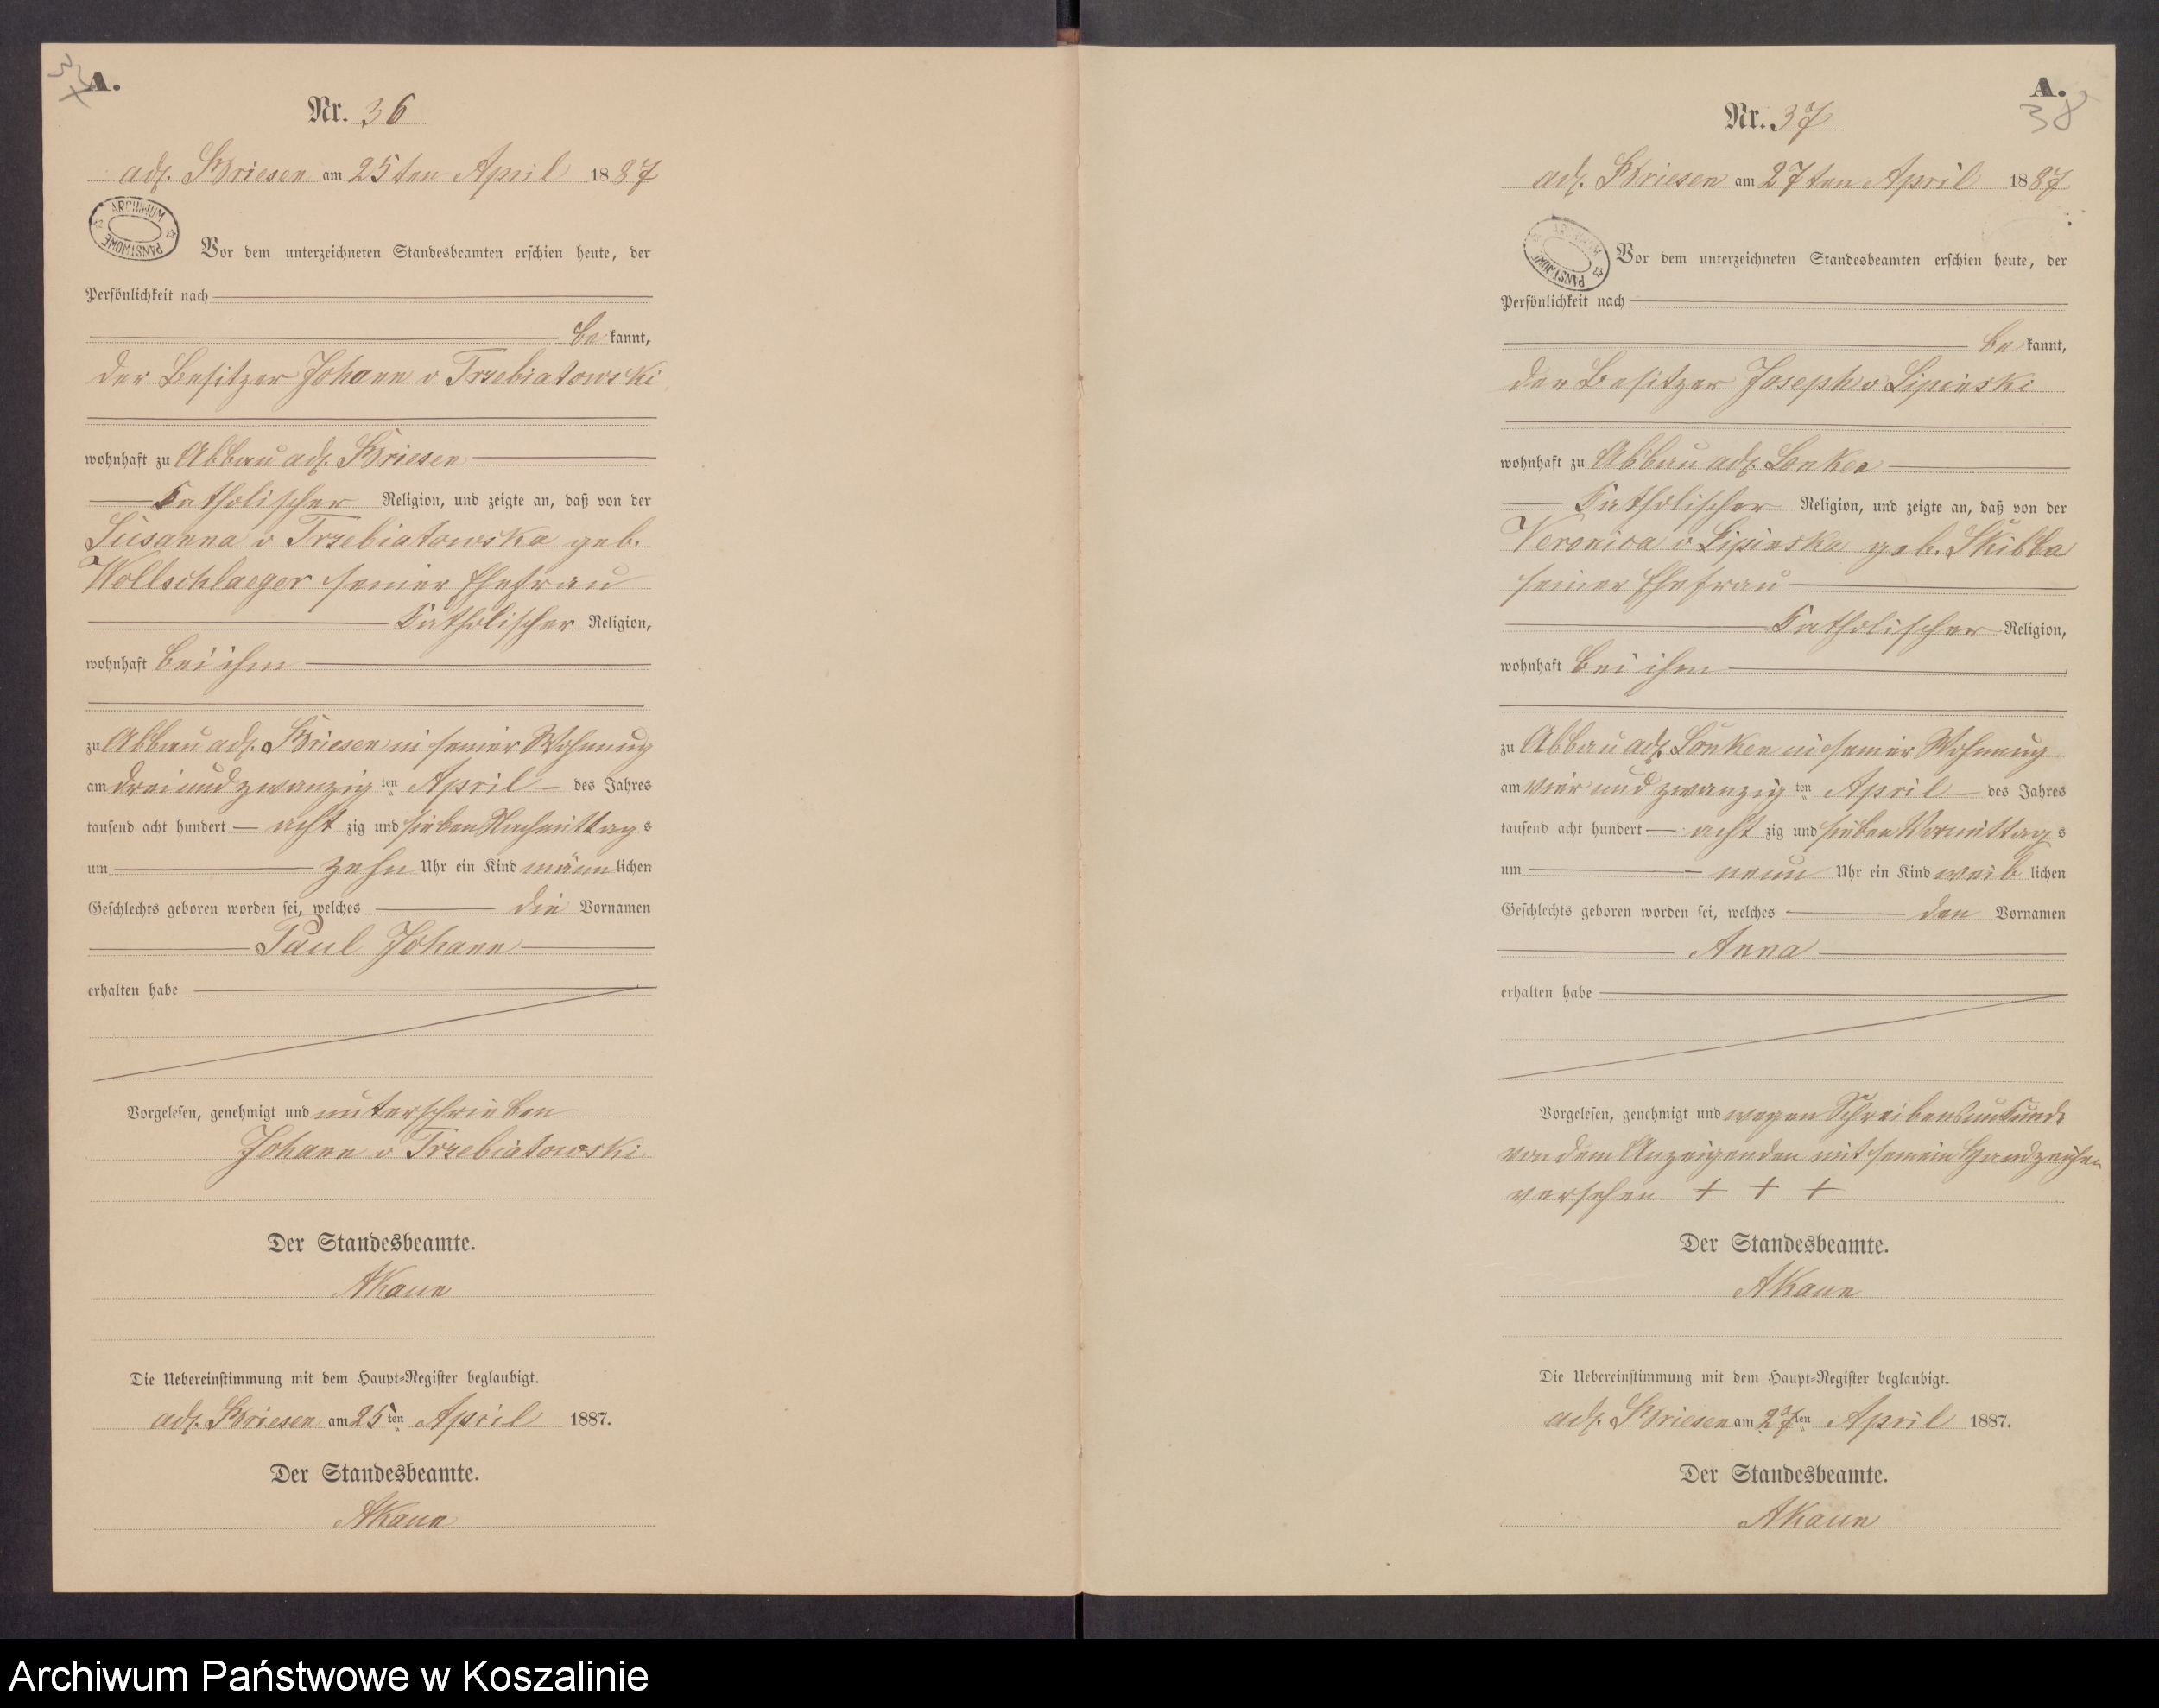 A.
Nr. 36
adl. Briesen am 25ten April 1887
ARCHIWUM PAŃSTWOWE
Vor dem unterzeichneten Standesbeamten erschien heute, der
Persönlichkeit nach
be kannt,
der Besitzer Johann v Trzebiatowski
wohnhaft zu Abbau adl. Briesen
katholischer Religion, und zeigte an, daß von der
Susanna v Trzebiatowska geb.
Wollschlaeger seiner Ehefrau
katholischer Religion,
wohnhaft bei ihm
zu Abbau adl. Briesen in seiner Wohnung
am drei und zwanzig ten April des Jahres
tausend acht hundert acht zig und sieben Nachmittag s
um zehn Uhr ein Kind männ lichen
Geschlechts geboren worden sei, welches die Vornamen
Paul Johann
erhalten habe
Vorgelesen, genehmigt und unterschrieben
Johann v Trzebiatowski
Der Standesbeamte.
AKaun
Die Uebereinstimmung mit dem Haupt-Register beglaubigt.
adl. Briesen am 25 ten April 1887.
Der Standesbeamte.
AKaun
A.
38
Nr. 37
adl. Briesen am 27ten April 1887
ARCHIWUM PAŃSTWOWE
Vor dem unterzeichneten Standesbeamten erschien heute, der
Persönlichkeit nach
be kannt,
der Besitzer Joseph v Lipinski
wohnhaft zu Abbau adl. Lonken
katholischer Religion, und zeigte an, daß von der
Veronica v Lipinska geb. Skibba
seiner Ehefrau
katholischer Religion,
wohnhaft bei ihm
zu Abbau adl. Lonken in seiner Wohnung
am vier und zwanzig ten April des Jahres
tausend acht hundert acht zig und sieben Vormittag s
um neun Uhr ein Kind weib lichen
Geschlechts geboren worden sei, welches den Vornamen
Anna
erhalten habe
Vorgelesen, genehmigt und wegen Schreibensunkunde
von dem Anzeigenden mit seinem Handzeichen
versehen + + +
Der Standesbeamte.
AKaun
Die Uebereinstimmung mit dem Haupt-Register beglaubigt.
adl. Briesen am 27 ten April 1887.
Der Standesbeamte.
AKaun
Archiwum Państwowe w Koszalinie